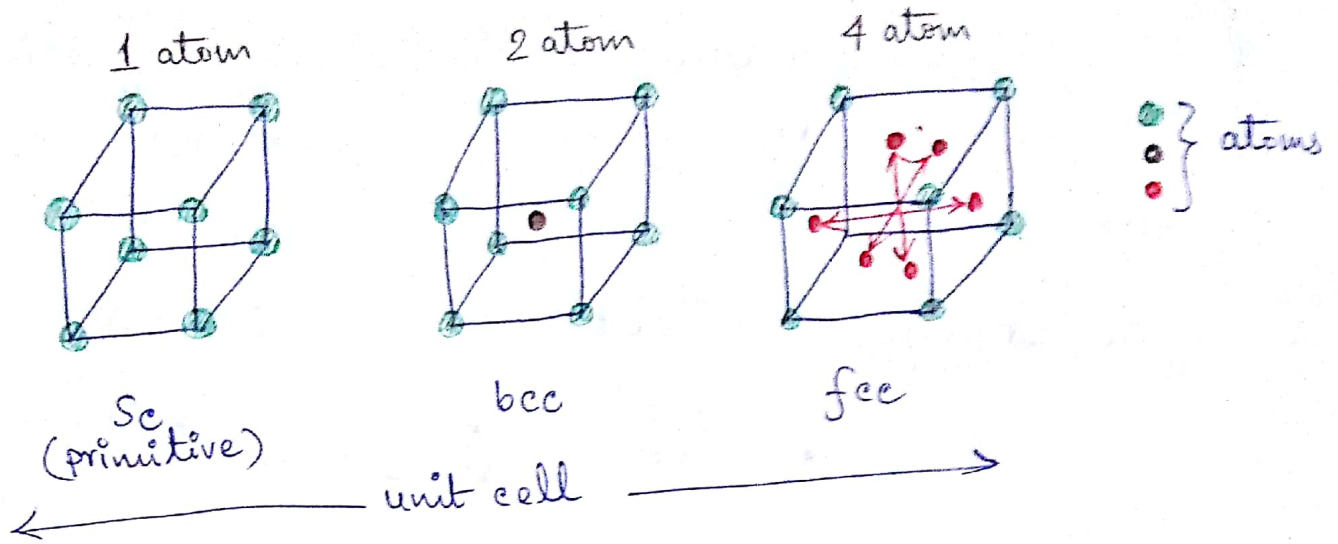 1 atom
2 atom
4 atom
} atoms
Sc
(primitive)
bcc
fcc
unit cell